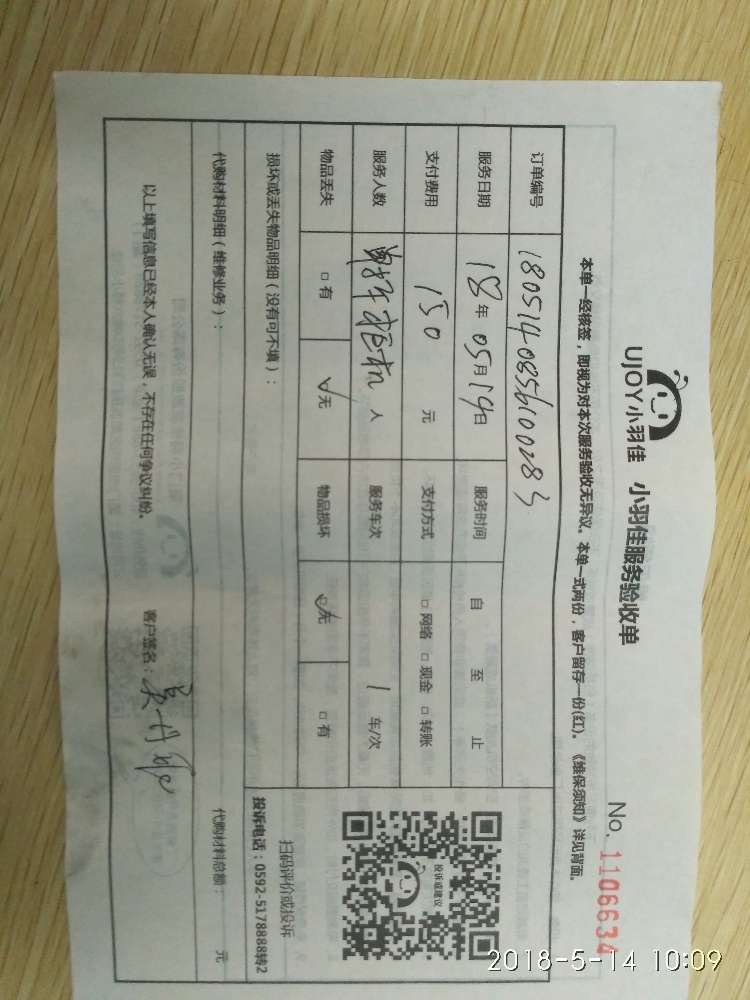 UJOY小羽佳 小羽佳服务验收单
No. 1106634
本单一经核签，即视为对本次服务验收无异议。本单一式两份，客户留存一份(红)。《维保须知》详见背面。
订单编号
服务日期 18年05月14日 服务时间 自 至 止
支付费用 150 元 支付方式 □网络 □现金 □转账
服务人数 人 服务车次 1 车/次
物品丢失 □有 ☑无 物品损坏 ☑无 □有
损坏或丢失物品明细（没有可不填）：
投诉或建议
扫码评价或投诉
投诉电话：0592-5178888转2
代购材料明细（维修业务）： 代购材料总额： 元
以上填写信息已经本人确认无误，不存在任何争议纠纷。 客户签名：
2018-5-14 10:09